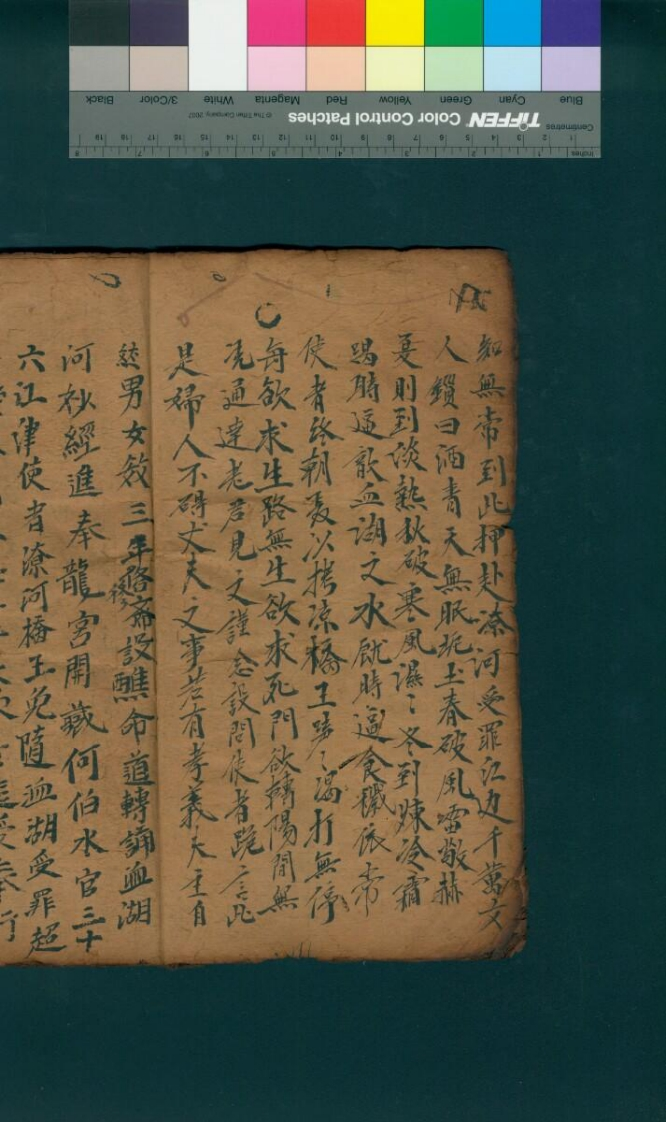 知無常到此押赴漆河受罪江边千萬丈
人鑽曰洒青天無眠垢土春破風雷敬赫
夏則到淡熱秋破寒風濕〻冬到煉冷霜
渴時逼飲血湖之水飢時逼食鐵依常
使者終朝憂以拷凉橋工夢〻渴打無停
每欲求生路無生欲求死門欲轉陽間無
凭通達老君見又謹念設問侯者跪言此
是婦人不碍丈夫之事若有孝義夫主自
然男女效三年後啓斋設醮命道轉誦血湖
河妙經進奉龍宮開藏何伯水官三十
六江津使者潦河橋王免隨血湖受罪超
Blue
Cyan
Green
Yellow
Red
Magenta
White
3/Color
Black
TIFFEN Color Control Patches
© The Tiffen Company, 2007
Centimetres
1 2 3 4 5 6 7 8 9 10 11 12 13 14 15 16 17 18 19
Inches
1 2 3 4 5 6 7 8